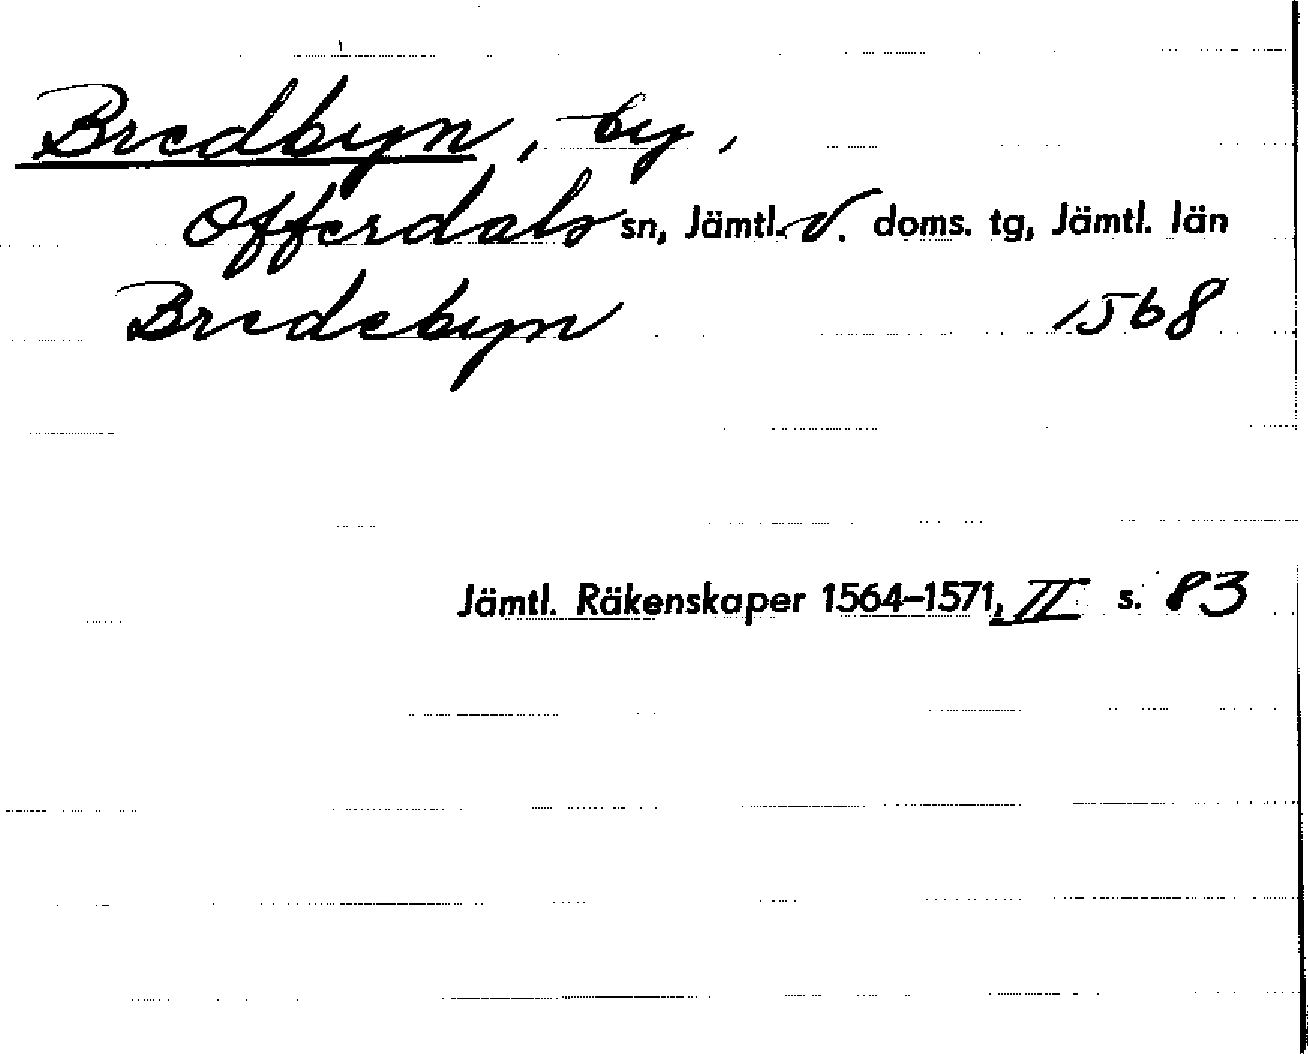 Bredbyn, by,
Offerdals sn, Jämtl. v. doms. tg, Jämtl. län
Bredebyn 1568
Jämtl. Räkenskaper 1564–1571, II s. 83